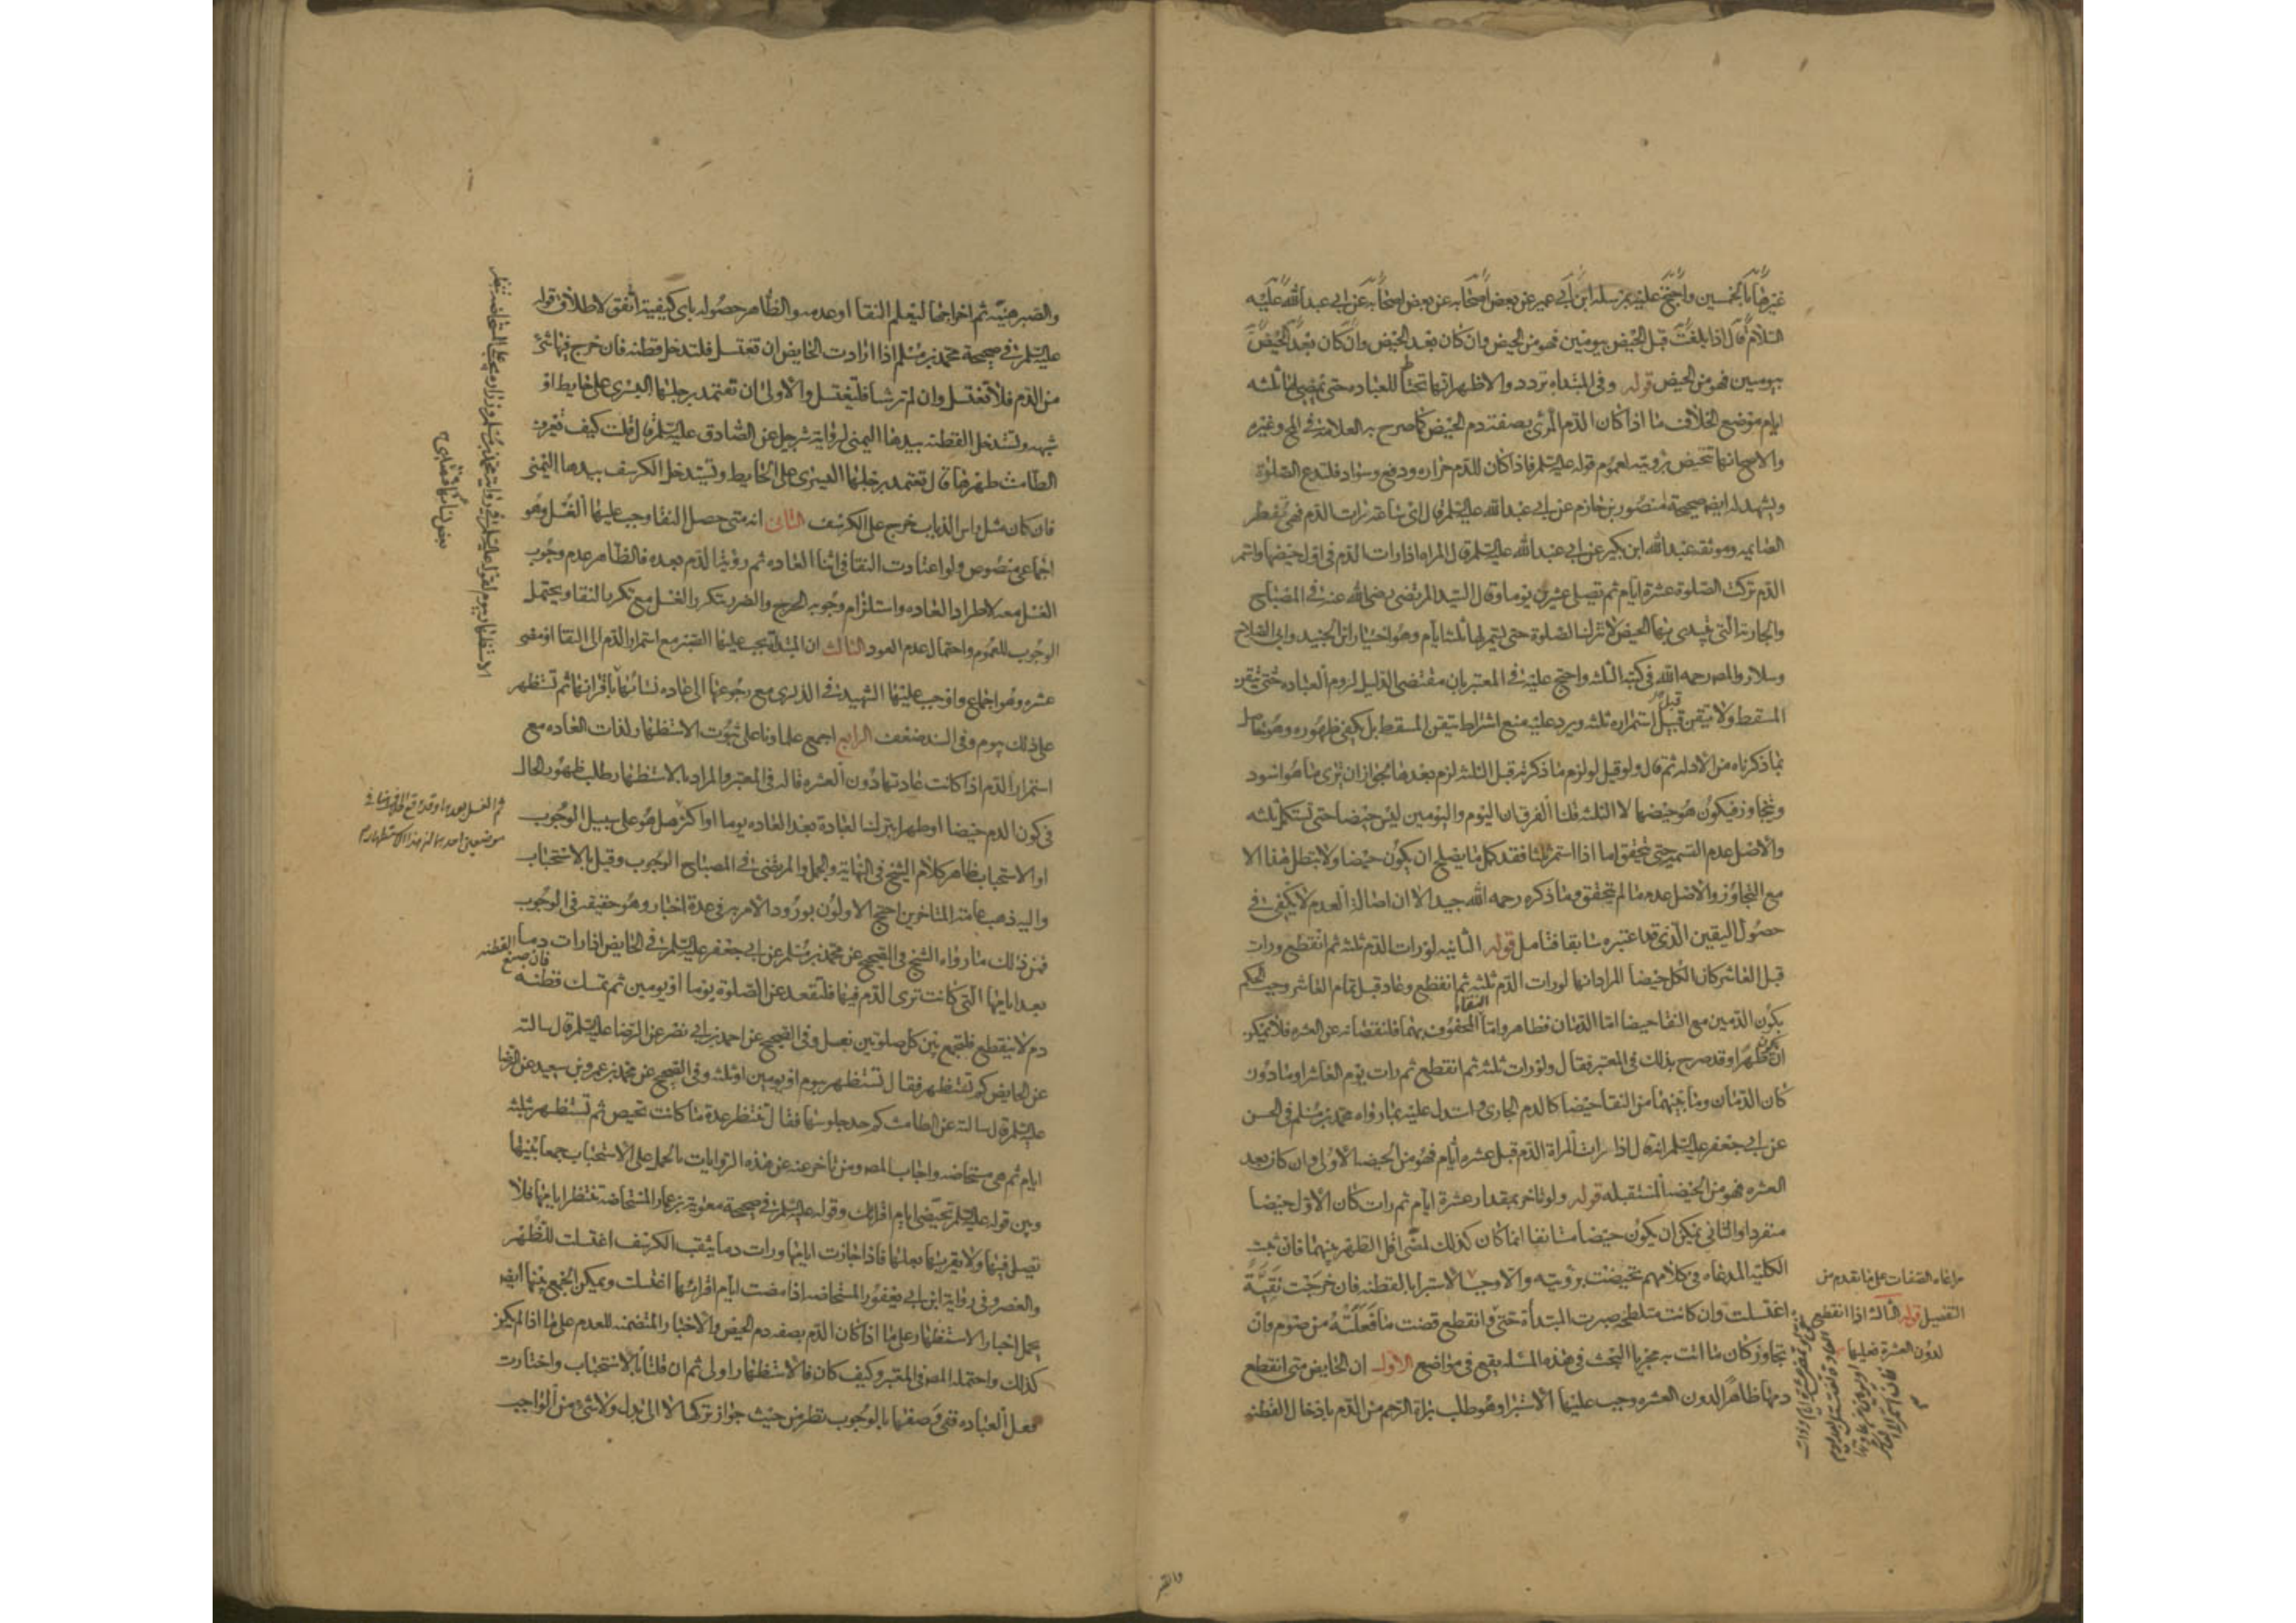 غيرها بالخمسين واحتج عليه بمرسلة ابن ابي عمير عن بعض اصحابه عن بعض اصحابه عن ابي عبد الله عليه
السلام قال اذا بلغت قبل الحيض بيومين فهو من الحيض وان كان بعد الحيض وان كان بعد الحيض
بيومين فهو من الحيض قوله وفي المبتداه تردد والاظهر انها تحتاط للعباده حتى تمضي لها ثلثه
ايام موضع الخلاف ما اذا كان الدم المرئي بصفة دم الحيض كما صرح به العلامة في المخ وغيره
والاصح انها تتحيض برويته لعموم قوله عليه السلم فاذا كان للدم حراره ودفع وسواد فلتدع الصلوة
ويشهد له ايضا صحيحة منصور بن حازم عن ابي عبد الله عليه السلم قال اي ساعة رات الدم فهي تفطر
الصايمه وموثقة عبد الله ابن بكير عن ابي عبد الله عليه السلم قال المراه اذا رات الدم في اول حيضها واستمر
الدم تركت الصلوة عشرة ايام ثم تصلي عشرين يوما وقال السيد المرتضى رضي الله عنه في المصباح
والجارية التي يبتدي بها الحيض لا تترك الصلوة حتى يستمر لها ثلثة ايام وهو اختيار ابن الجنيد وابي الصلاح
وسلار والمصر رحمه الله في كتبه الثلثه واحتج عليه في المعتبر بان مقتضى الدليل لزوم العباده حتى تتيقن
المسقط ولا تيقن قبل استمراره ثلثه ويرد عليه منع اشتراط تيقن المسقط بل يكفي ظهوره وهو حاصل
بما ذكرناه من الادله ثم قال ولو قيل لو لزم ما ذكرته قبل الثلثه لزم بعدها لجواز ان ترى ما هو اسود
ويتجاوز فيكون هو حيضها لا الثلثه قلنا الفرق ان اليوم واليومين ليس حيضا حتى تستكمل ثلثه
والاصل عدم التتمه حتى تتحقق اما اذا استمر ثلثا فقد كمل ما يصلح ان يكون حيضا ولا يبطل هذا الا
مع التجاوز والاصل عدمه ما لم يتحقق وما ذكره رحمه الله جيد الا ان اصالة العدم لا يكفي في
حصول اليقين الذي قد اعتبره سابقا فتامل قوله الثانيه لو رات الدم ثلثه ثم انقطع ورات
قبل العاشر كان الكل حيضا المراد انها لو رات الدم ثلثه ثم انقطع وعاد قبل تمام العاشر وجب الحكم
بكون الدمين مع النقا حيضا اما الدمان فظاهر واما النقاء المحفوف بهما فلنقصانه عن العشره فلا يمكن
ان يكون طهرا وقد صرح بذلك في المعتبر فقال ولو رات ثلثه ثم انقطع ثم رات يوم العاشر او ما دون
كان الدمان وما بينهما من النقا حيضا كالدم الجاري واستدل عليه بما رواه محمد بن مسلم في الحسن
عن ابي جعفر عليه السلم انه قال اذا رات المراة الدم قبل عشره ايام فهو من الحيضه الاولى وان كان بعد
العشره فهو من الحيضه المستقبله قوله ولو تاخر بمقدار عشرة ايام ثم رات كان الاول حيضا
منفردا والثاني يمكن ان يكون حيضا مستانفا انما كان كذلك لمضي اقل الطهر بينهما فان ثبتت
الكليه المدعاه في كلامهم تحيضت برؤيته والا وجب مراعاه الصفات على ما تقدم من
التفصيل قوله الثالثه اذا انقطع
لدون العشرة فعليها
الاستبرا بالقطنه فان خرجت نقية
اغتسلت وان كانت متلطخه صبرت المبتدأة حتى
وانقطع قضت ما فعلته من صوم وان
تجاوز كان ما اتت به مجزيا البحث في هذه المسئله يقع في مواضع الاول ان الحايض متى انقطع
دمها ظاهرا لدون العشره وجب عليها الاستبرا وهو طلب براة الرحم من الدم بادخال القطنه
والصبر هنيئة ثم اخراجها ليعلم النقا او عدمه والظاهر حصوله باي كيفية اتفق لاطلاق قوله
عليه السلم في صحيحة محمد بن مسلم اذا ارادت الحايض ان تغتسل فلتدخل قطنه فان خرج فيها شئ
من الدم فلا تغتسل وان لم تر شيا فلتغتسل والاولى ان تعتمد برجلها اليسرى على حايط او
شبهه وتستدخل القطنه بيدها اليمنى لرواية شرحبيل عن الصادق عليه السلم قال قلت كيف تعرف
الطامث طهرها قال تعتمد برجلها اليسرى على الحايط وتستدخل الكرسف بيدها اليمنى
فان كان مثل راس الذباب خرج على الكرسف الثاني انه متى حصل النقا وجب عليها الغسل وهو
اجماعي منصوص ولو اعتادت النقا في اثناء العاده ثم رؤية الدم بعده فالظاهر عدم وجوب
الغسل معه لاطراد العاده واستلزام وجوبه الحرج والضرر بتكرر الغسل مع تكرر النقا ويحتمل
الوجوب للعموم واحتمال عدم العود الثالث ان المبتداة يجب عليها الصبر مع استمرار الدم الى النقا او مضي
عشره وهو اجماع واوجب عليها الشهيد في الذكرى مع رجوعها الى عاده نسائها باقرائها ثم تستظهر
على ذلك بيوم وفي السند ضعف الرابع اجمع علماونا على ثبوت الاستظهار لذات العاده مع
استمرار الدم اذا كانت عادتها دون العشره قاله في المعتبر والمراد بالاستظهار طلب ظهور الحال
في كون الدم حيضا او طهرا بترك العبادة بعد العاده يوما او اكثر
ثم الغسل بعدها وقد وقع الخلاف هنا في
موضعين احدهما ان هذا الاستظهار
هل هو على سبيل الوجوب
او الاستحباب ظاهر كلام الشيخ في النهاية والجمل والمرتضى في المصباح الوجوب وقيل بالاستحباب
واليه ذهب عامة المتاخرين احتج الاولون بورود الامر به في عدة اخبار وهو حقيقة في الوجوب
فمن ذلك ما رواه الشيخ في الصحيح عن محمد بن مسلم عن ابي جعفر عليه السلم في الحايض اذا رات دما
بعد ايامها التي كانت ترى الدم فيها فلتقعد عن الصلوة يوما او يومين ثم تمسك قطنه
فان صبغ القطنه
دم لا ينقطع فلتجمع بين كل صلوتين بغسل وفي الصحيح عن احمد بن ابي نصر عن الرضا عليه السلم قال سالته
عن الحايض كم تستظهر فقال تستظهر بيوم او يومين او ثلثه وفي الصحيح عن محمد بن عمرو بن سعيد عن الرضا
عليه السلم قال سالته عن الطامث كم حد جلوسها فقال تنتظر عدة ما كانت تحيض ثم تستظهر بثلثه
ايام ثم هي مستحاضه واجاب المصر ومن تاخر عنه عن هذه الروايات بالحمل على الاستحباب جمعا بينها
وبين قوله عليه السلم تحيضي ايام اقرائك وقوله عليه السلم في صحيحة معوية بن عمار المستحاضة تنتظر ايامها فلا
تصل فيها ولا يقربها بعلها فاذا جازت ايامها ورات دما يثقب الكرسف اغتسلت للظهر
والعصر وفي رواية ابن ابي يعفور المستحاضه اذا مضت ايام اقرائها اغتسلت ويمكن الجمع بينها ايضا
بحمل اخبار الاستظهار على ما اذا كان الدم بصفه دم الحيض والاخبار المتضمنه للعدم على ما اذا لم يكن
كذلك واحتمله المصر في المعتبر وكيف كان فالاستظهار اولى ثم ان قلنا بالاستحباب واختارت
فعل العباده ففي وصفها بالوجوب نظر من حيث جواز تركها لا الى بدل ولا شئ من الواجب